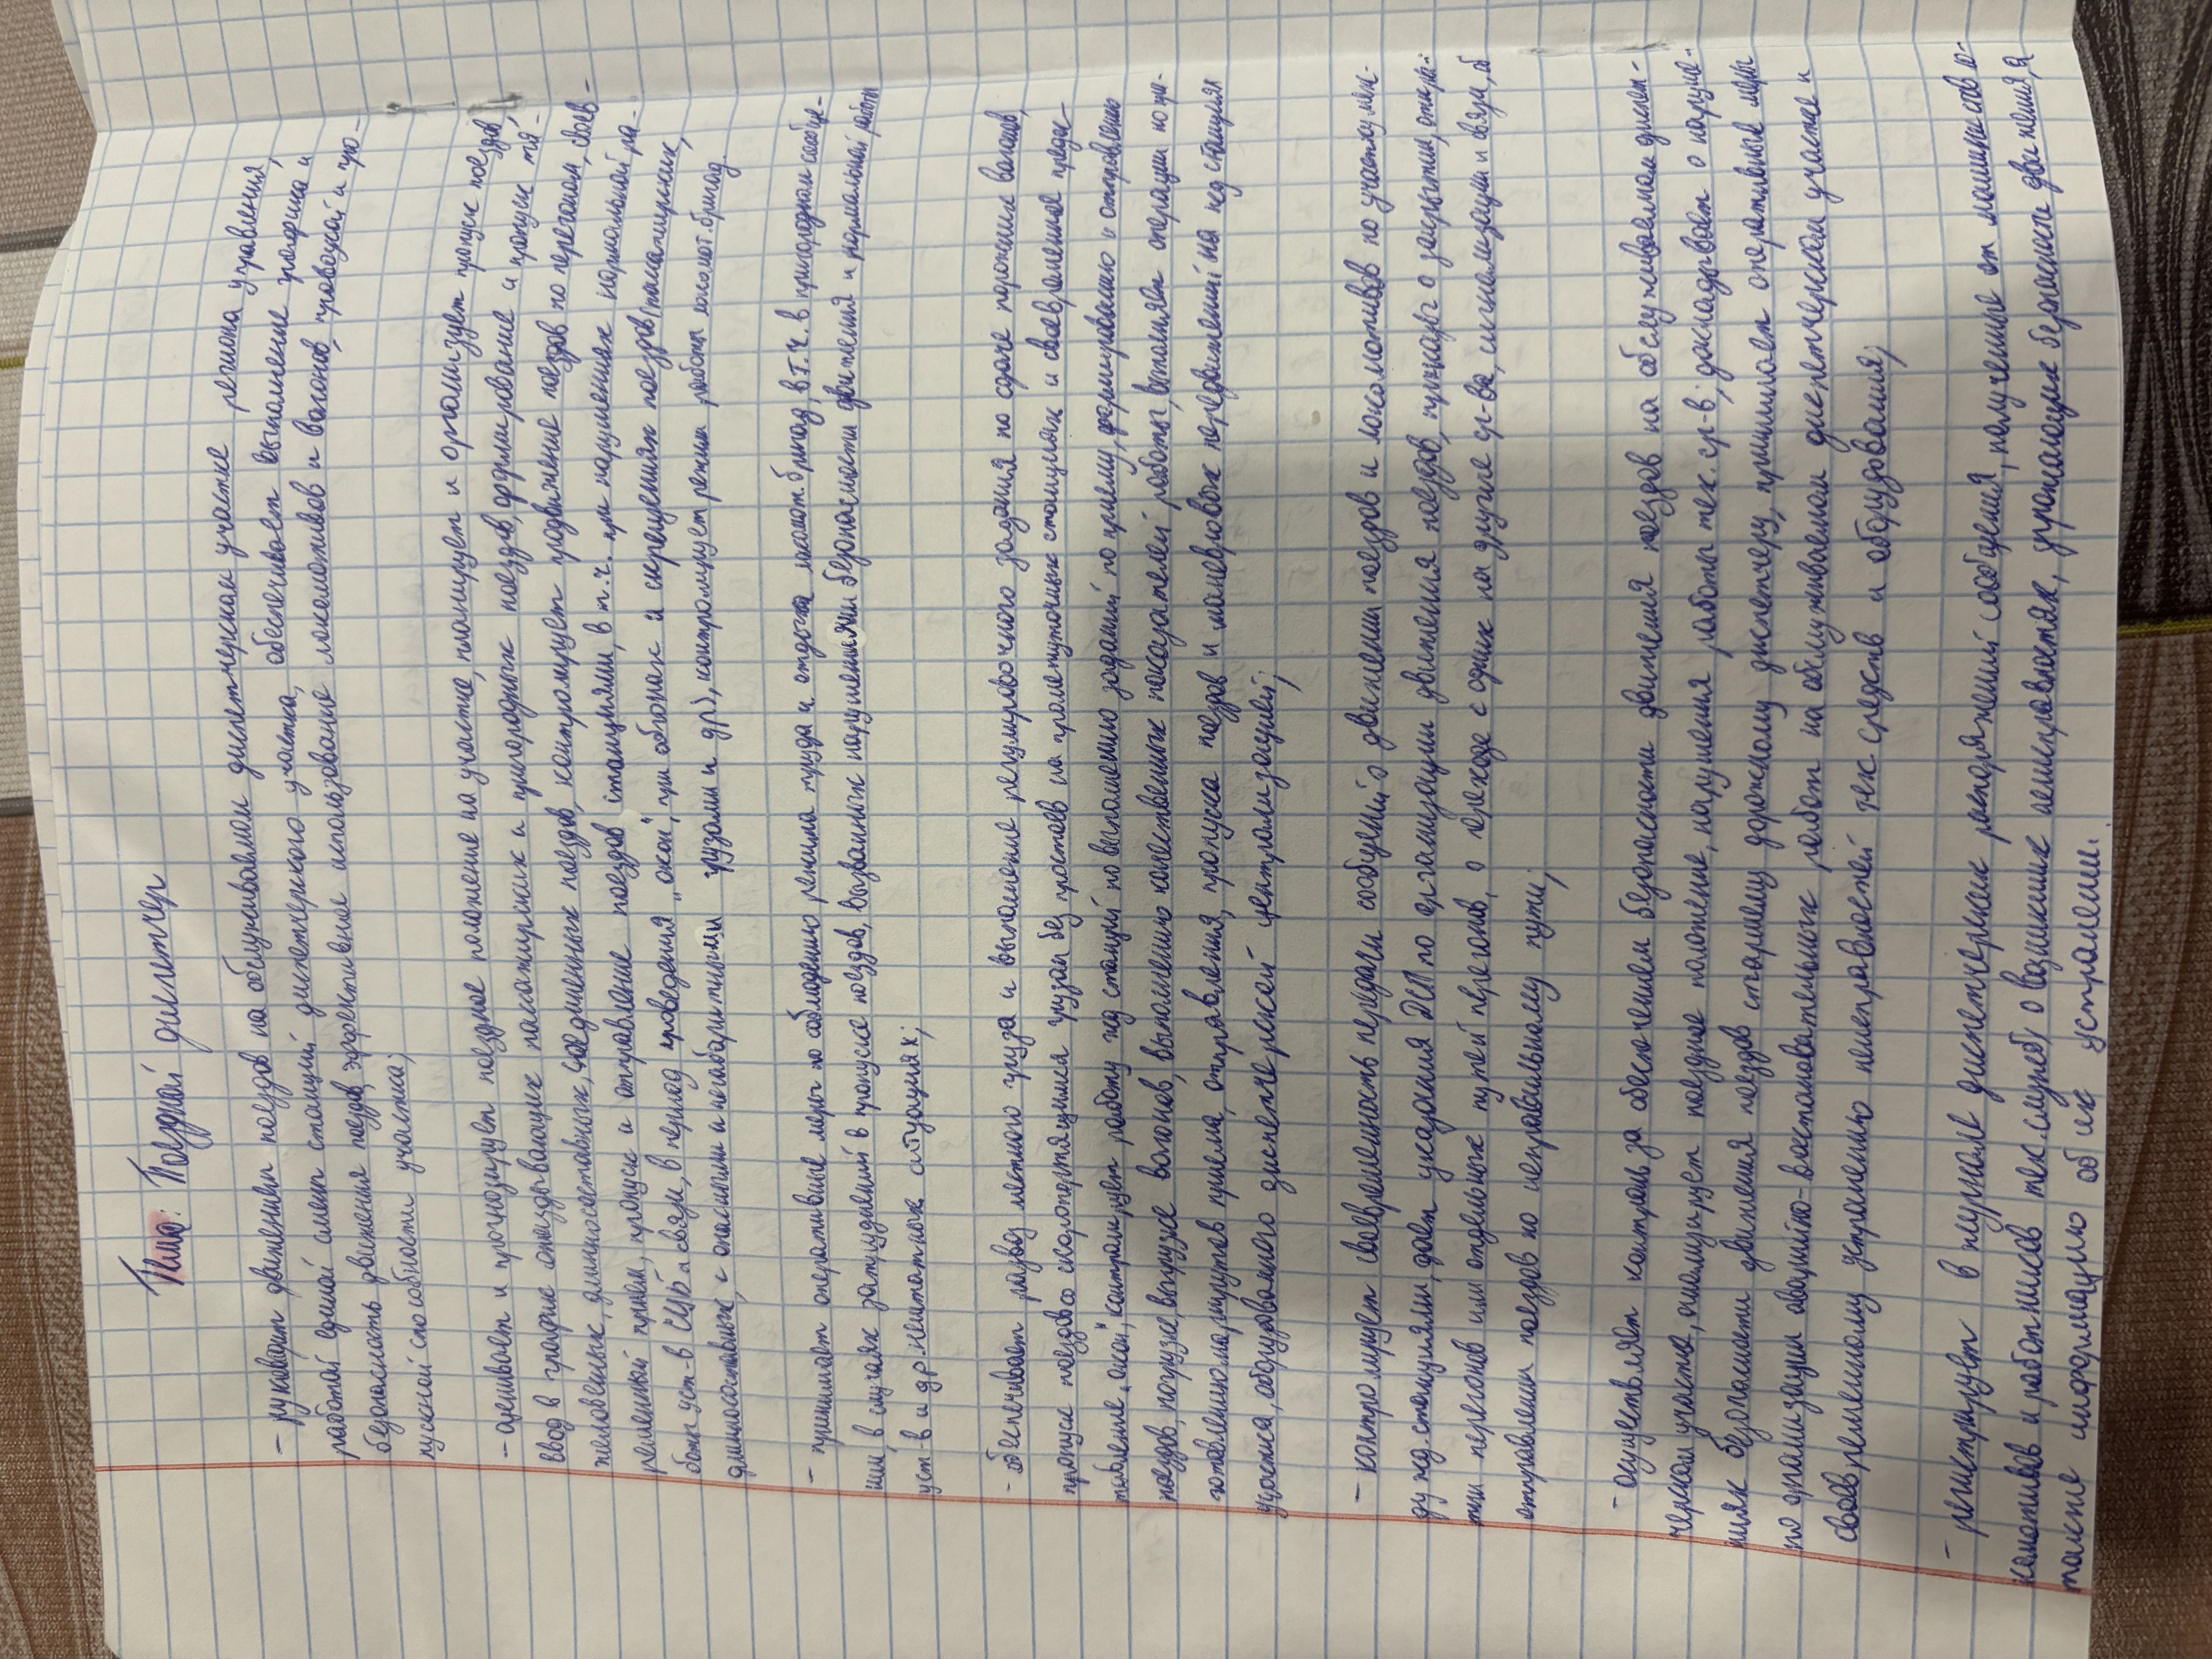 Тема: Поездной диспетчер
- руководит движением поездов на обслуживаемом диспетчерском участке региона управления,
работой единой смен станций диспетчерского участка, обеспечивает выполнение графика и
безопасность движения поездов, эффективное использование локомотивов и вагонов, провозной и про-
пускной способности участка;
- оценивает и прогнозирует поездное положение на участке, планирует и организует пропуск поездов,
ввод в график опаздывающих пассажирских и пригородных поездов, формирование и пропуск тя-
желовесных, длинносоставных, соединенных поездов, контролирует продвижение поездов по перегонам, своев-
ременный прием, пропуск и отправление поездов станциями, в т.ч. при нарушениях нормальной ра-
боты уст-в СЦБ и связи, в период проведения „окон", при обгонах и скрещениях поездов (пассажирских,
длинносоставных, с опасными и негабаритными грузами и др.), контролирует режим работы локомот. бригад
- принимает оперативные меры по соблюдению режима труда и отдыха локомот. бригад, в т.ч. в пригородном сообще-
нии, в случаях затруднений в пропуске поездов, вызванных нарушениями безопасности движения и нормальной работы
уст-в и др. нештатных ситуациях;
- обеспечивает развоз местного груза и выполнение регулировочного задания по сдаче порожних вагонов,
пропуск поездов со скоропортящимися грузами без простоев на промежуточных станциях и своевременное предос-
тавление „окон", контролирует работу жд станций по выполнению заданий по приему, формированию и отправлению
поездов, погрузке, выгрузке вагонов, выполнению качественных показателей работы, выполняет операции по при-
готовлению маршрутов приема, отправления, пропуска поездов и маневровых передвижений на жд станциях
участка, оборудованного диспетчерской централизацией;
- контролирует своевременность передачи сообщений о движении поездов и локомотивов по участку меж-
ду жд станциями, дает указания ДСП по организации движения поездов, приказы о закрытии, откры-
тии перегонов или отдельных путей перегонов, о переходе с одних на другие ср-ва сигнализации и связи, об
отправлении поездов по неправильному пути;
- осуществляет контроль за обеспечением безопасности движения поездов на обслуживаемом диспет-
черском участке, анализирует поездное положение, нарушения работы тех. ср-в; докладывает о наруше-
ниях безопасности движения поездов старшему дорожному диспетчеру, принимает оперативные меры
по организации аварийно-восстановительных работ на обслуживаемом диспетчерском участке и
своевременному устранению неисправностей тех средств и оборудования;
- регистрирует в журнале диспетчерских распоряжений сообщения, полученные от машинистов ло-
комотивов и работников тех. служб, о возникших неисправностях, угрожающих безопасности движения, а
также информацию об их устранении.